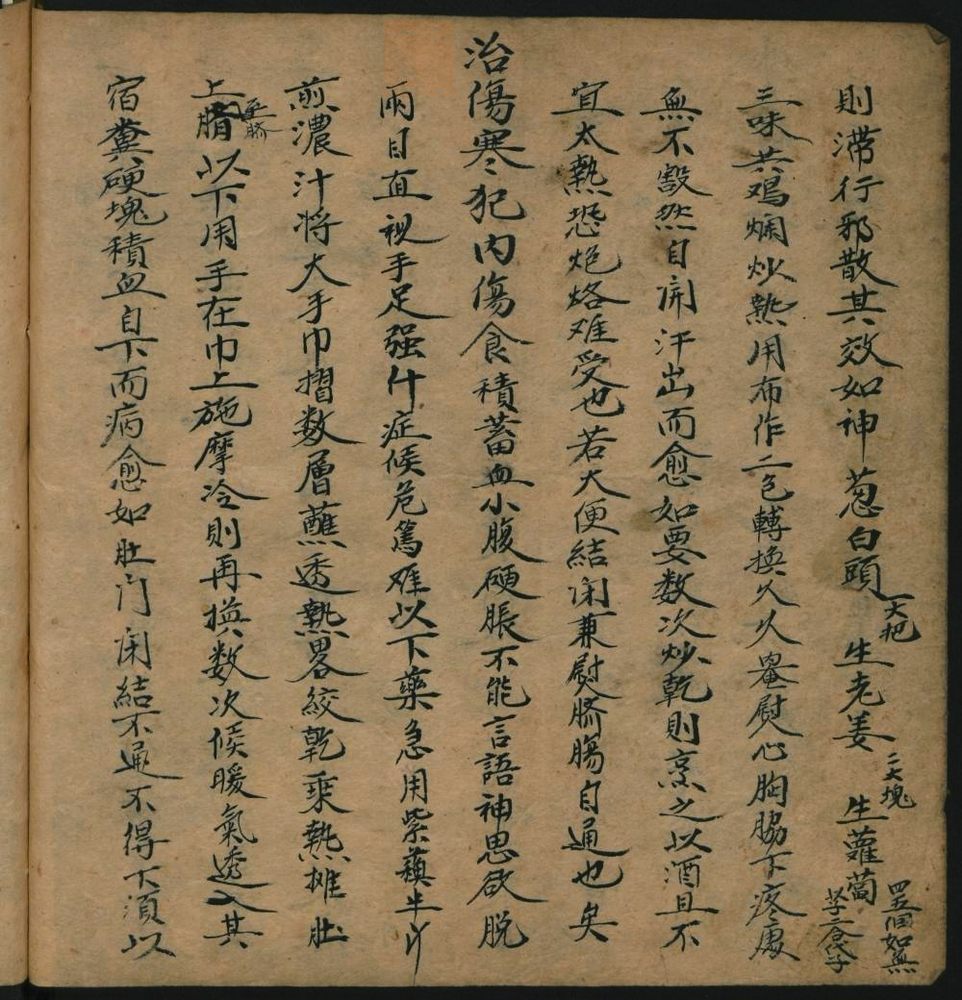 則滯行邪散其效如神葱白頭一大把 生老姜二大塊 生蘿蔔四五個如無子二合代
三味共搗爛炒熱用布作二包轉換久久罨慰心胸脇下疼處
無不豁然自開汗出而愈如要数次炒乾則烹之以酒且不
宜太熱恐炮烙难受也若大便結闭兼慰臍腸自通也矣
治傷寒犯内傷食積蓄血小腹硬脹不能言語神思欲脱
兩目直視手足强什症候危篤难以下藥急用紫蘇半斤
煎濃汁将大手巾摺数層蘸透熱畧絞乾乘熱摊肚
上臍以下用手在巾上施摩冷則再換数次候暖氣透入其
宿糞硬塊積血自下而病愈如肚门闭結不通不得下須以